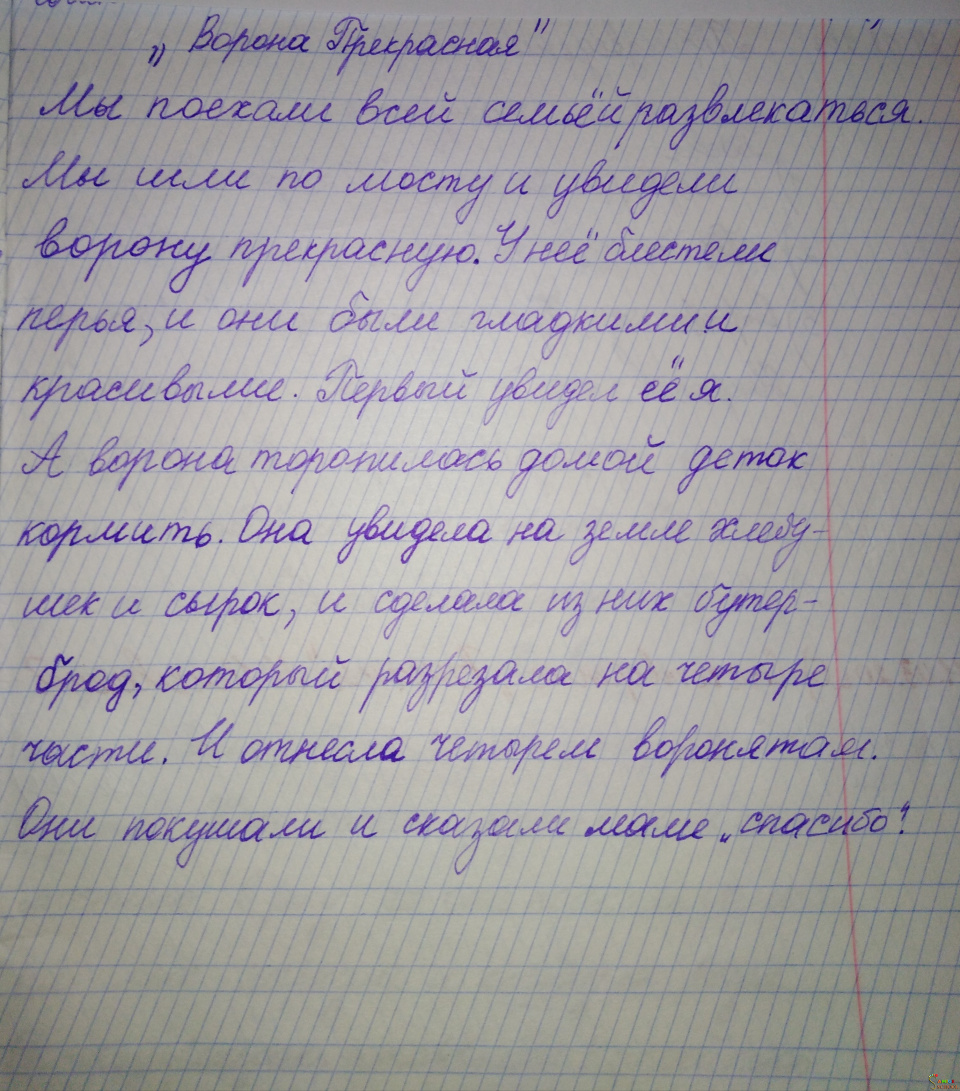 „Ворона Прекрасная"
Мы поехали всей семьёй развлекаться.
Мы шли по мосту и увидели
ворону прекрасную. У неё блестели
перья, и они были гладкими и
красивыми. Первый увидел её я.
А ворона торопилась домой деток
кормить. Она увидела на земле хлебу-
шек и сырок, и сделала из них бутер-
брод, который разрезала на четыре
части. И отнесла четырем воронятам.
Они покушали и сказали маме „спасибо".